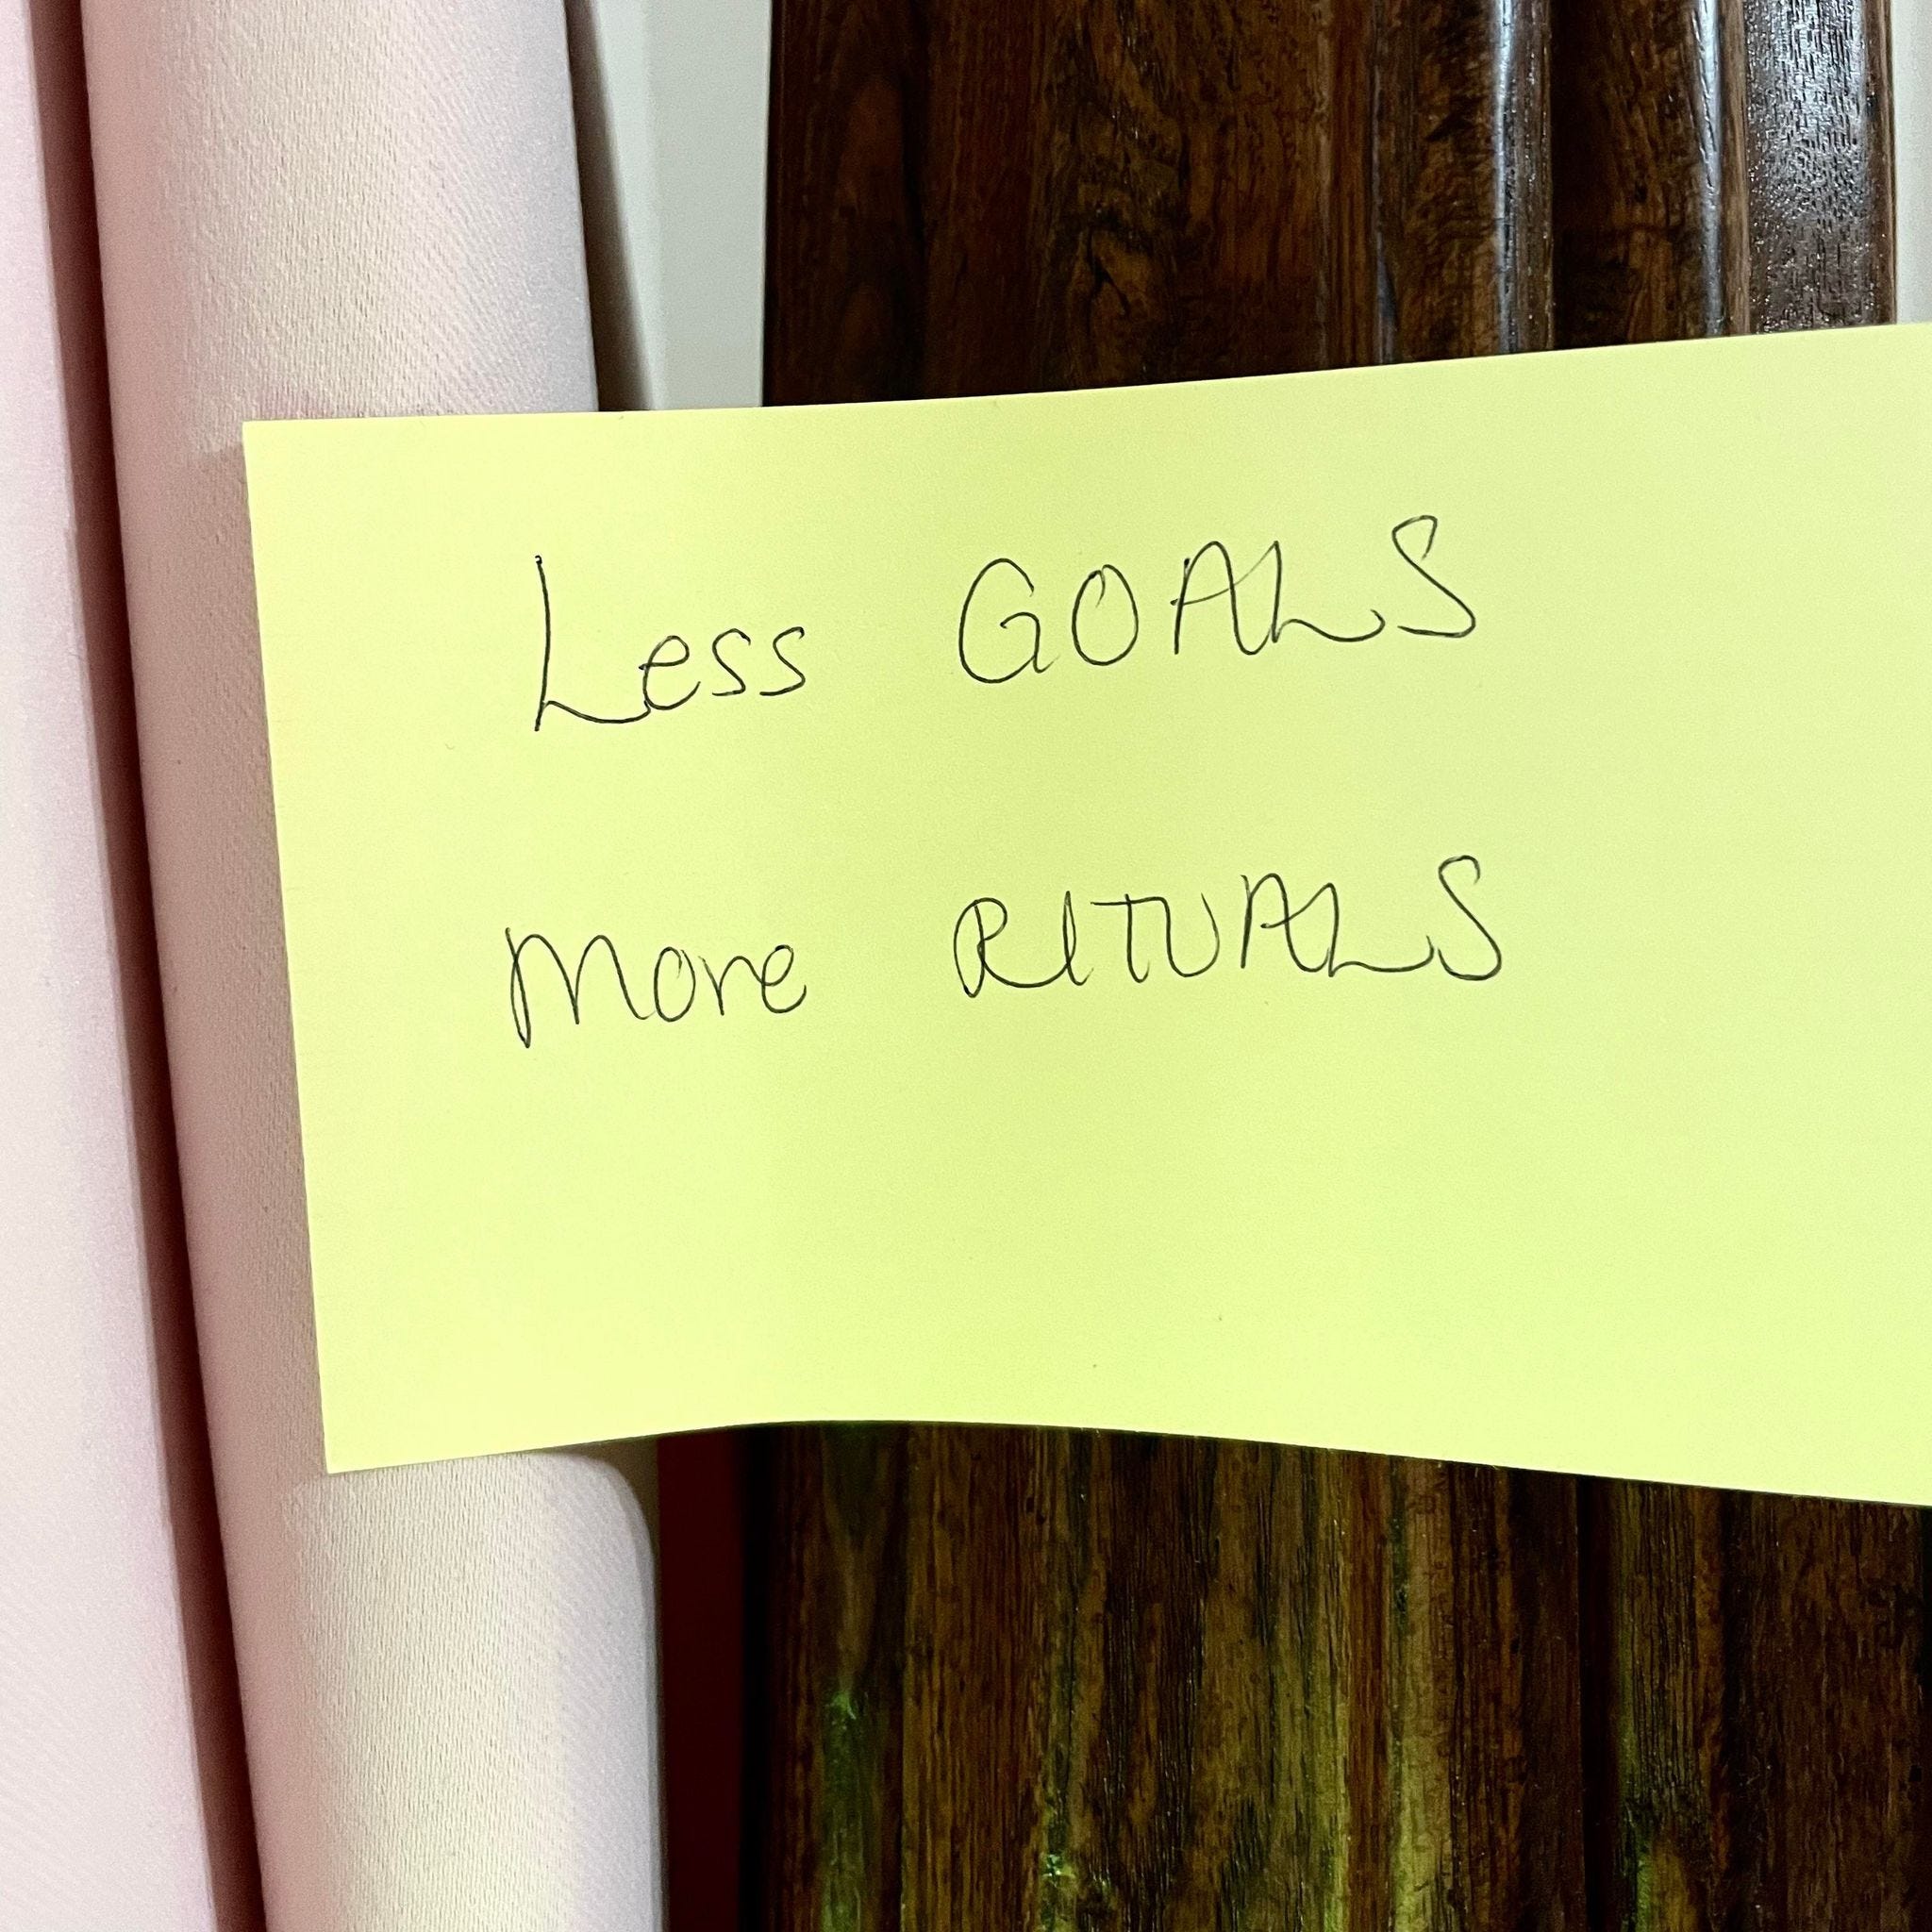 Less GOALS
More RITUALS